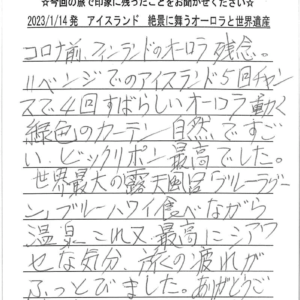 ☆今回の旅で印象に残ったことをお聞かせください☆
2023/1/14発 アイスランド 絶景に舞うオーロラと世界遺産
コロナ前、フィンランドのオーロラ残念。
リベンジでのアイスランド5回チャン
スで4回すばらしいオーロラ動く
緑色のカーテン自然ですご
い、ビックリポン最高でした。
世界最大の露天風呂「ブルーラグー
ン」ブルーハワイ食べながら
温泉、これ又最高にシアワ
せな気分、旅の疲れが
ふっとびました。ありがとうご